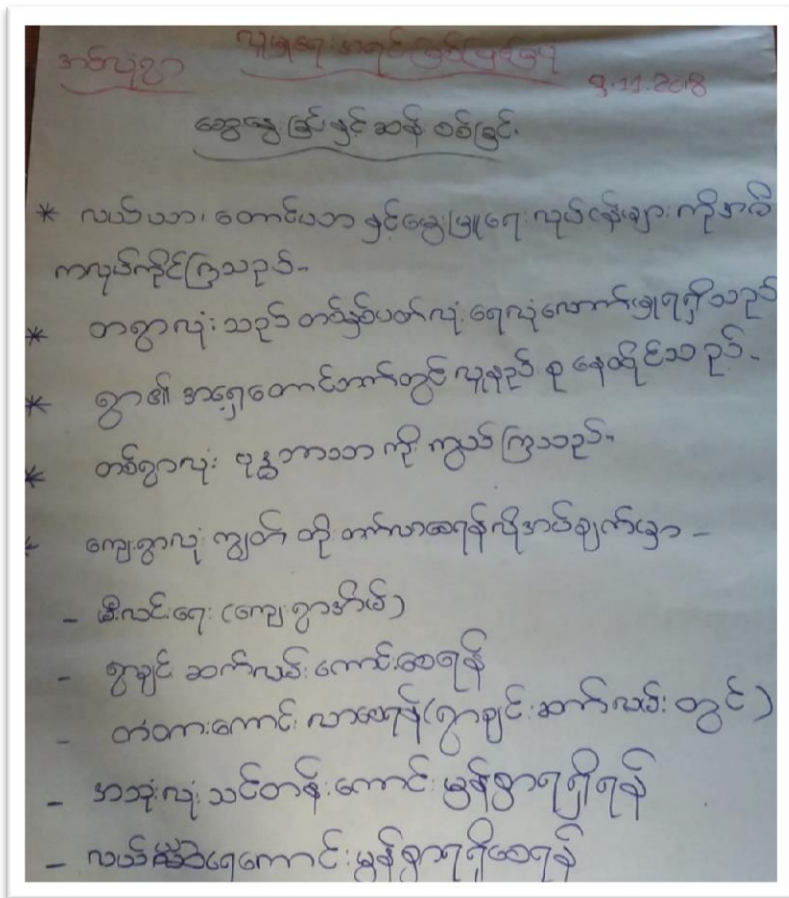 အစ်လုံရွာ လူမှုရေးအရင်းမြစ်ပြမြေပုံ
9.11.2018
ဆွေးနွေးခြင်းနှင့်ဆန်းစစ်ခြင်း
* လယ်ယာ၊ တောင်ယာ နှင့်မွေးမြူရေးလုပ်ငန်းများကိုအဓိ
ကလုပ်ကိုင်ကြသည်။
* တရွာလုံးသည် တစ်နှစ်ပတ်လုံး ရေလုံလောက်မှုရရှိသည်
* ရွာ၏ အရှေ့တောင်ဘက်တွင် လူနည်းစု နေထိုင်သည်။
* တစ်ရွာလုံး ဗုဒ္ဓဘာသာ ကိုးကွယ်ကြသည်။
ကျေးရွာလုံးကျွတ် တိုးတက်လာစေရန်လိုအပ်ချက်မှာ –
– မီးလင်းရေး (ကျေးရွာအိမ်)
– ရွာချင်းဆက်လမ်းကောင်းစေရန်
– တံတားကောင်းလာစေရန် (ရွာချင်းဆက်လမ်းတွင်)
– အသုံးလုံးသင်တန်းကောင်းမွန်စွာရရှိရန်
– လယ် ရေကောင်းမွန်စွာရရှိစေရန်